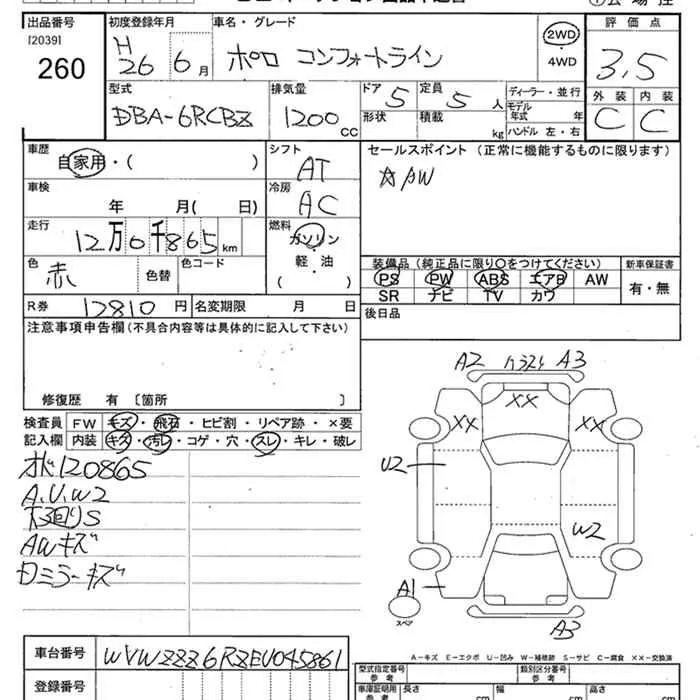 出品番号 初度登録年月 車名・グレード 評価点
[2039]
260
H26 6月 ポロ コンフォートライン 2WD・4WD 3,5
型式 排気量 ドア 5 定員 5人 ディーラー・並行 外装 内装
DBA-6RCBZ 1200cc 形状 積載 kg モデル年式 年 C C
ハンドル 左・右
車歴 シフト セールスポイント (正常に機能するものに限ります)
自家用・( ) AT ☆AW
車検 冷房
年 月( 日) AC
走行 燃料
12万0千865km ガソリン
色 色替 色コード 軽・油 装備品 (純正品に限り○をつけてください) 新車保証書
赤 ( ) PS PW ABS エアB AW 有・無
SR ナビ TV カワ
R券 12810円 名変期限 月 日 後日品
注意事項申告欄 (不具合内容等は具体的に記入して下さい)
修復歴 有 [箇所 ]
検査員 FW キズ・飛石・ヒビ割・リペア跡・×要
記入欄 内装 キズ・汚レ・コゲ・穴・スレ・キレ・破レ
120865
A.U.W2
下廻りS
AWキズ
ミラーキズ
A2 A3
XX XX XX
U2
W2
A1
スペア
A3
A-キズ E-エクボ U-凹み W-補修跡 S-サビ C-腐食 ××-交換済
車台番号 WVWZZZ6RZEU045861
登録番号
型式指定番号 参考 類別区分番号 参考
車庫証明用 参考 長さ cm 幅 cm 高さ cm